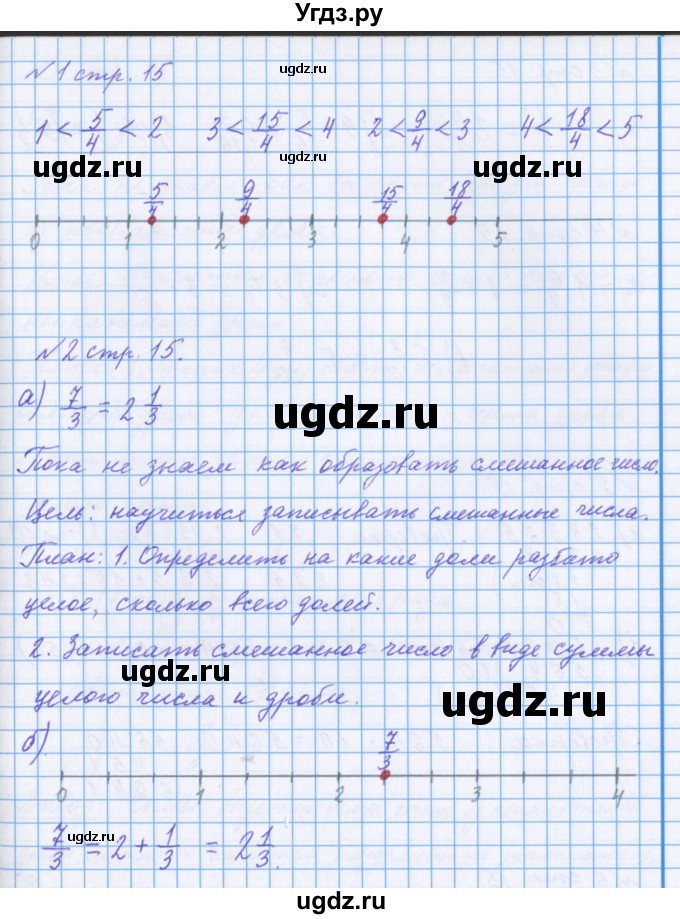 Угдз.ру
№1 стр. 15
ugdz.ru
1 < 5/4 < 2 3 < 15/4 < 4 2 < 9/4 < 3 4 < 18/4 < 5
ugdz.ru ugdz.ru ugdz.ru
5/4 9/4 15/4 18/4
0 1 2 3 4 5
№2 стр. 15.
а) 7/3 = 2 1/3
ugdz.ru
Пока не знаем как образовать смешанное число.
Цель: научиться записывать смешанные числа.
План: 1. Определить на какие доли разбито
целое, сколько всего долей.
2. Записать смешанное число в виде суммы
ugdz.ru
целого числа и дроби.
ugdz.ru
б).
7/3
0 1 2 3 4
7/3 = 2 + 1/3 = 2 1/3.
ugdz.ru
ugdz.ru